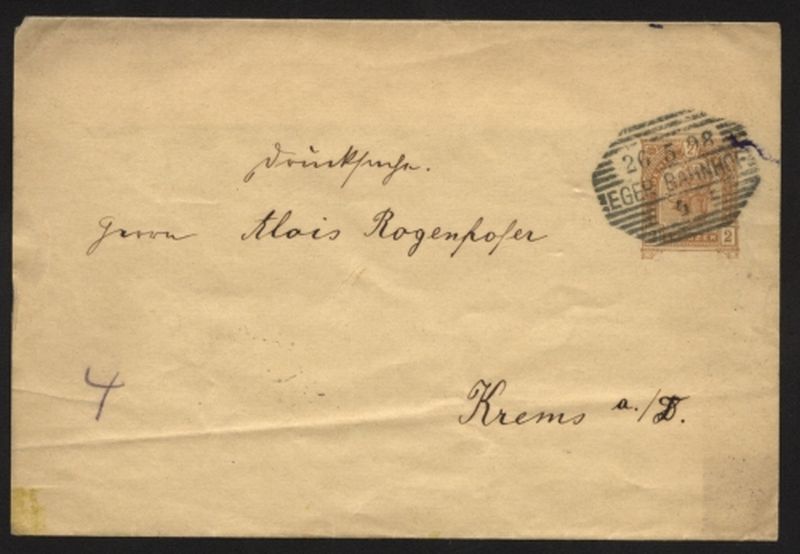 Drucksache.
26 5 98
EGER BAHNHOF
2
Herrn Alois Rogenhofer
4
Krems a./D.